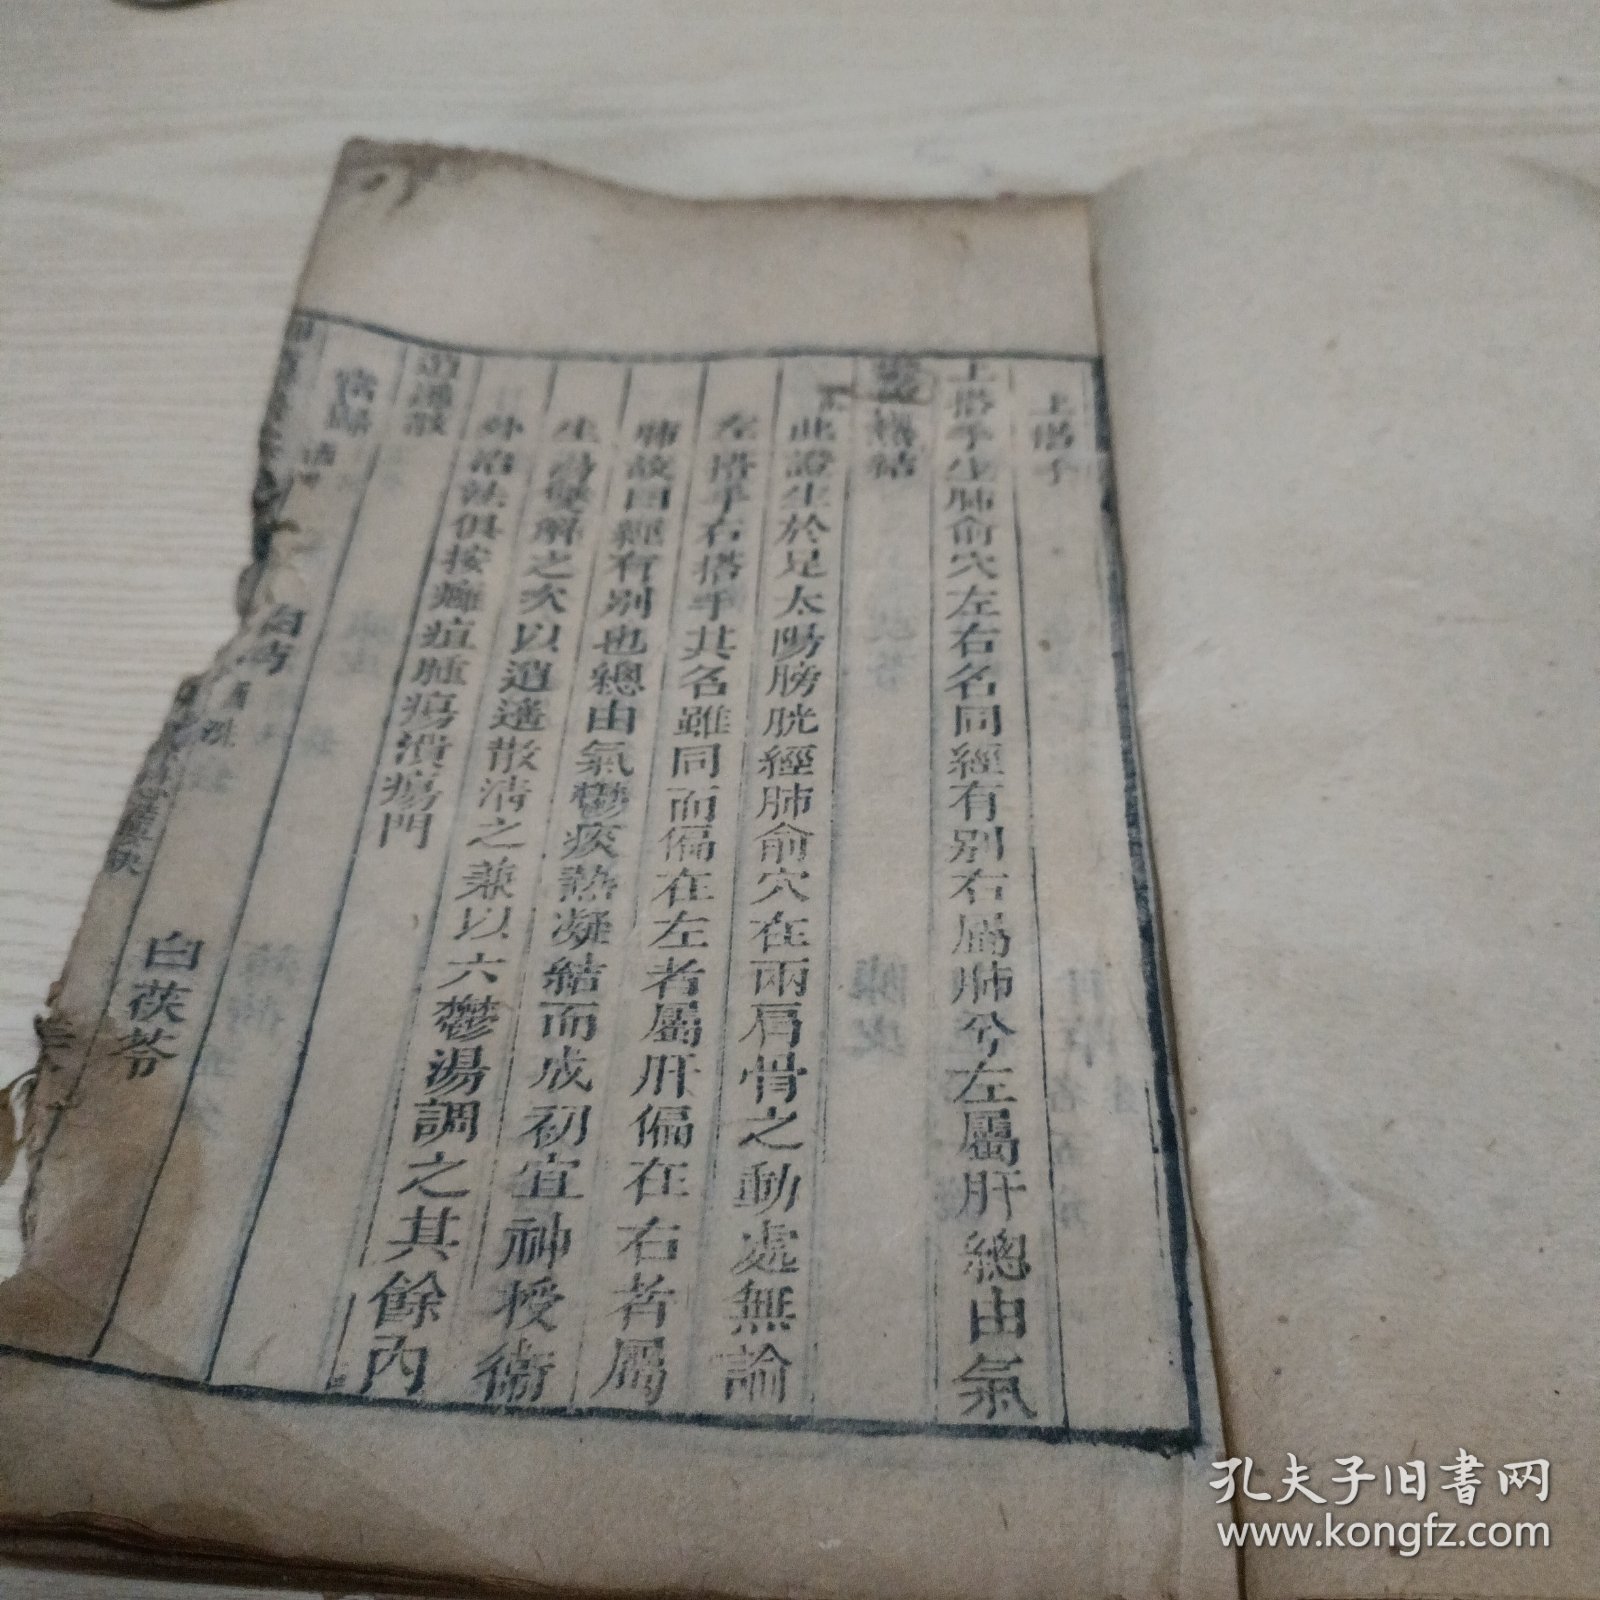 上搭手
上搭手生肺俞穴左右名同經有别右屬肺兮左屬肝總由氣
鬱痰熱結
此證生於足太陽膀胱經肺俞穴在兩肩骨之動處無論
左搭手右搭手其名雖同而偏在左者屬肝偏在右者屬
肺故曰經有别也總由氣鬱痰熱凝結而成初宜神授衛
生湯雙解之次以逍遥散清之兼以六鬱湯調之其餘內
外治法俱按癰疽腫瘍潰瘍門
逍遥散
當歸
白芍
白茯苓
孔夫子旧书网
www.kongfz.com